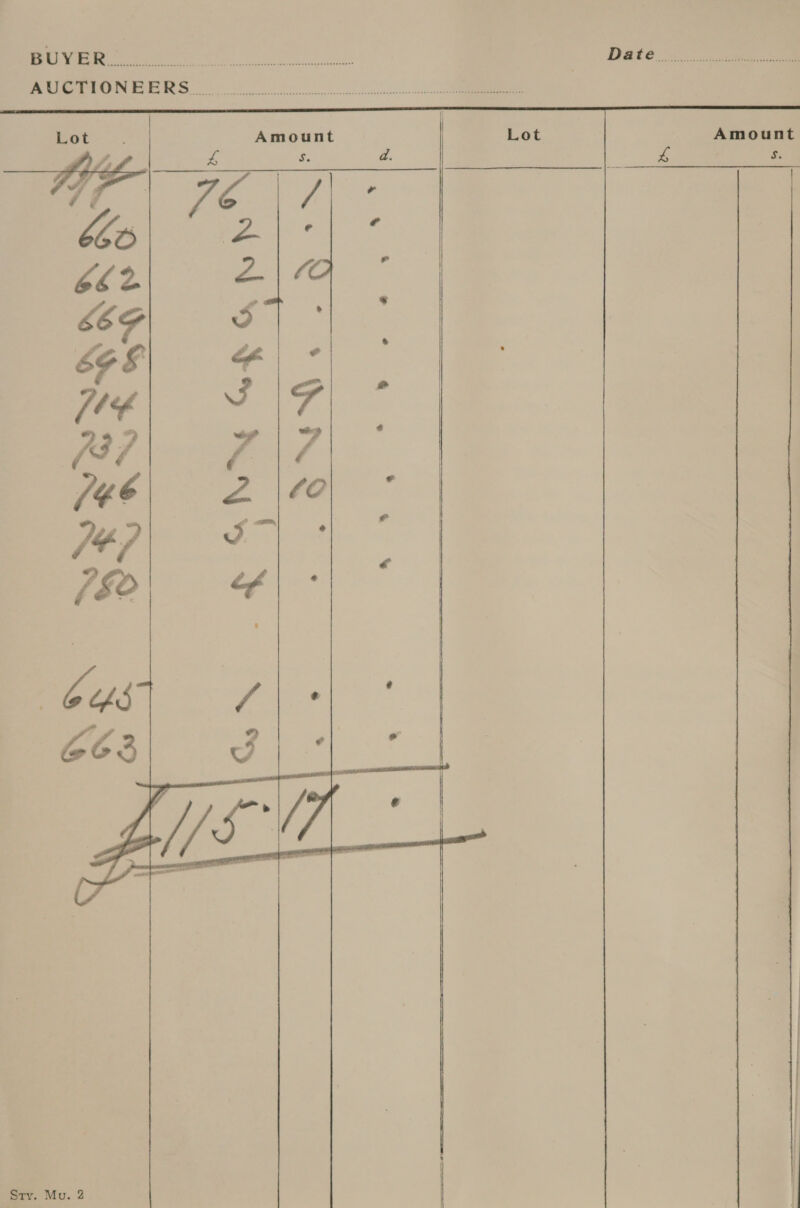 BUYER Date
AUCTIONEERS
Lot Amount Lot Amount
£ s. d. £ s.
76 1 •
660 2 • •
662 2 10 •
669 5 • •
698 4 • •
714 3 9 •
737 7 7 •
746 2 10 •
747 5 • •
750 4 • •
645 1 • •
663 3 • •
£115 17 •
Sty. Mu. 2